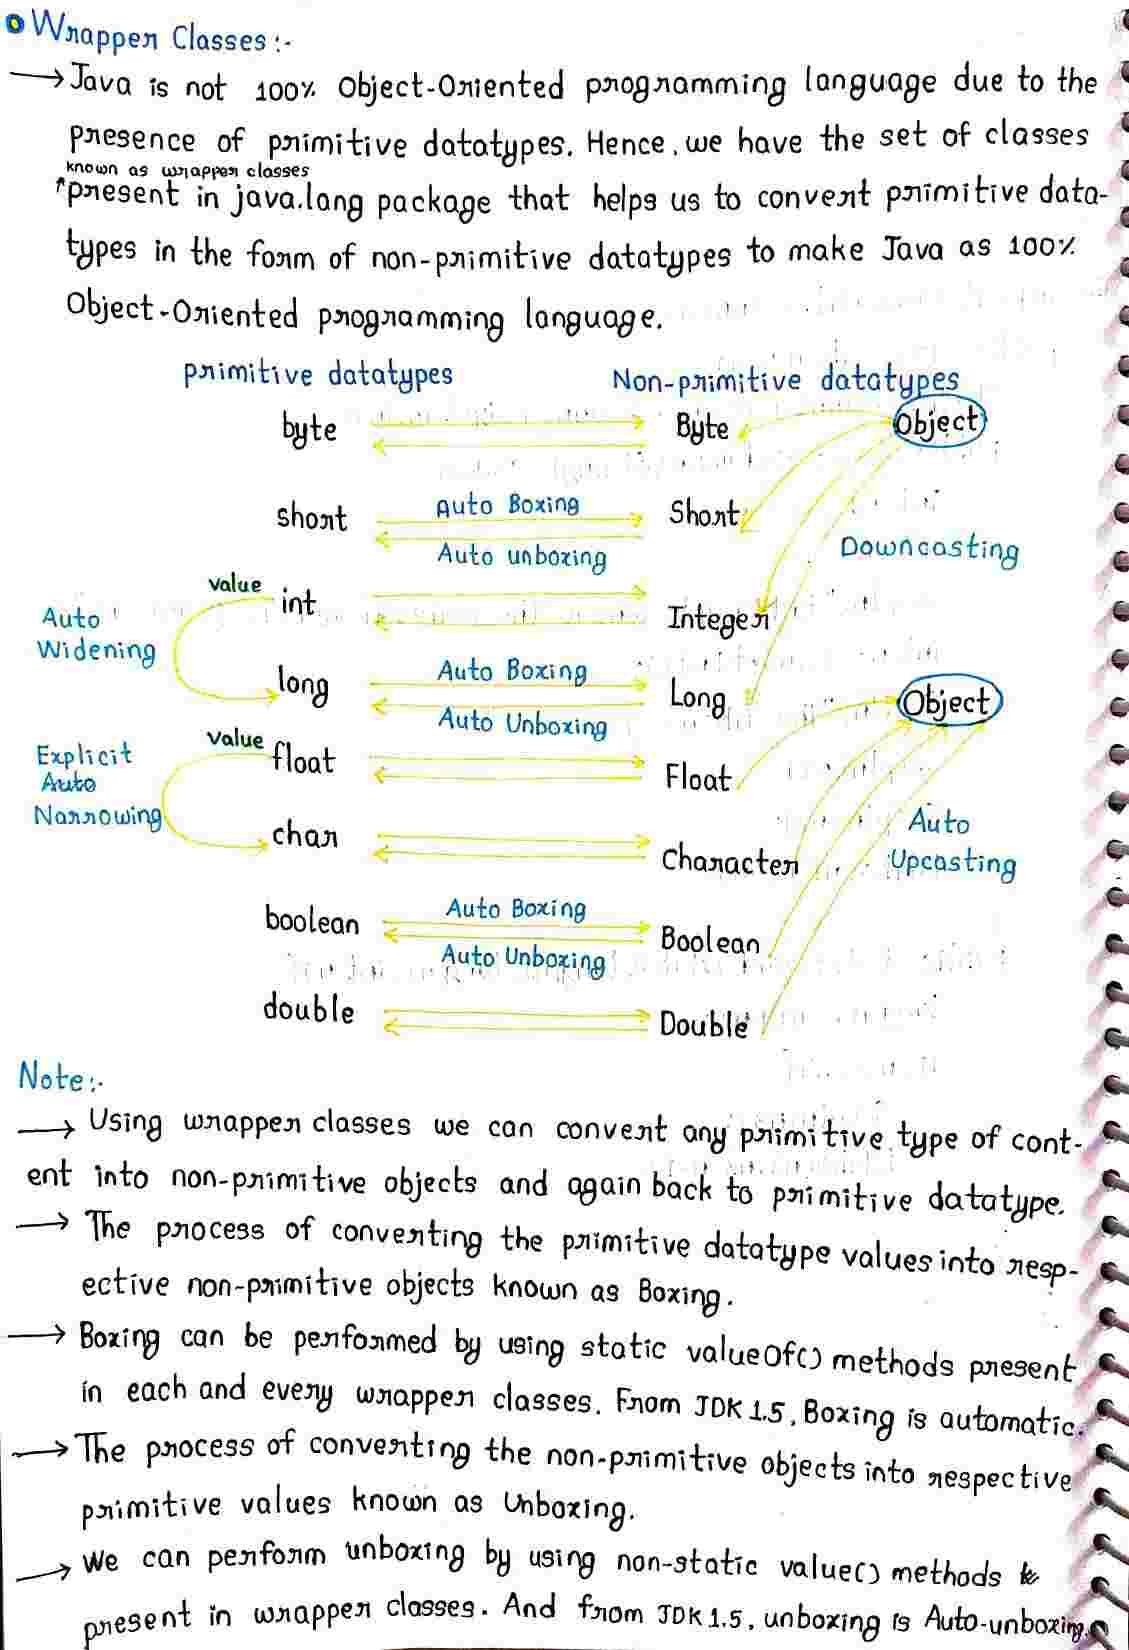 Wrapper Classes :-
→ Java is not 100% Object-Oriented programming language due to the
presence of primitive datatypes. Hence, we have the set of classes
known as wrapper classes
present in java.lang package that helps us to convert primitive data-
types in the form of non-primitive datatypes to make Java as 100%
Object-Oriented programming language.
primitive datatypes Non-primitive datatypes
byte Byte Object
short Auto Boxing Short
Auto unboxing Downcasting
value int Integer
Auto
Widening
long Auto Boxing Long Object
Auto Unboxing
value float Float
Explicit
Auto
Narrowing
char Character
Auto
Upcasting
boolean Auto Boxing Boolean
Auto Unboxing
double Double
Note:-
→ Using wrapper classes we can convert any primitive type of cont-
ent into non-primitive objects and again back to primitive datatype.
→ The process of converting the primitive datatype values into resp-
ective non-primitive objects known as Boxing.
→ Boxing can be performed by using static valueOf() methods present
in each and every wrapper classes. From JDK 1.5, Boxing is automatic.
→ The process of converting the non-primitive objects into respective
primitive values known as Unboxing.
→ We can perform unboxing by using non-static value() methods
present in wrapper classes. And from JDK 1.5, unboxing is Auto-unboxing.